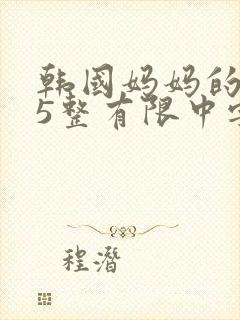 韩国妈妈的
5整有限中
程潛